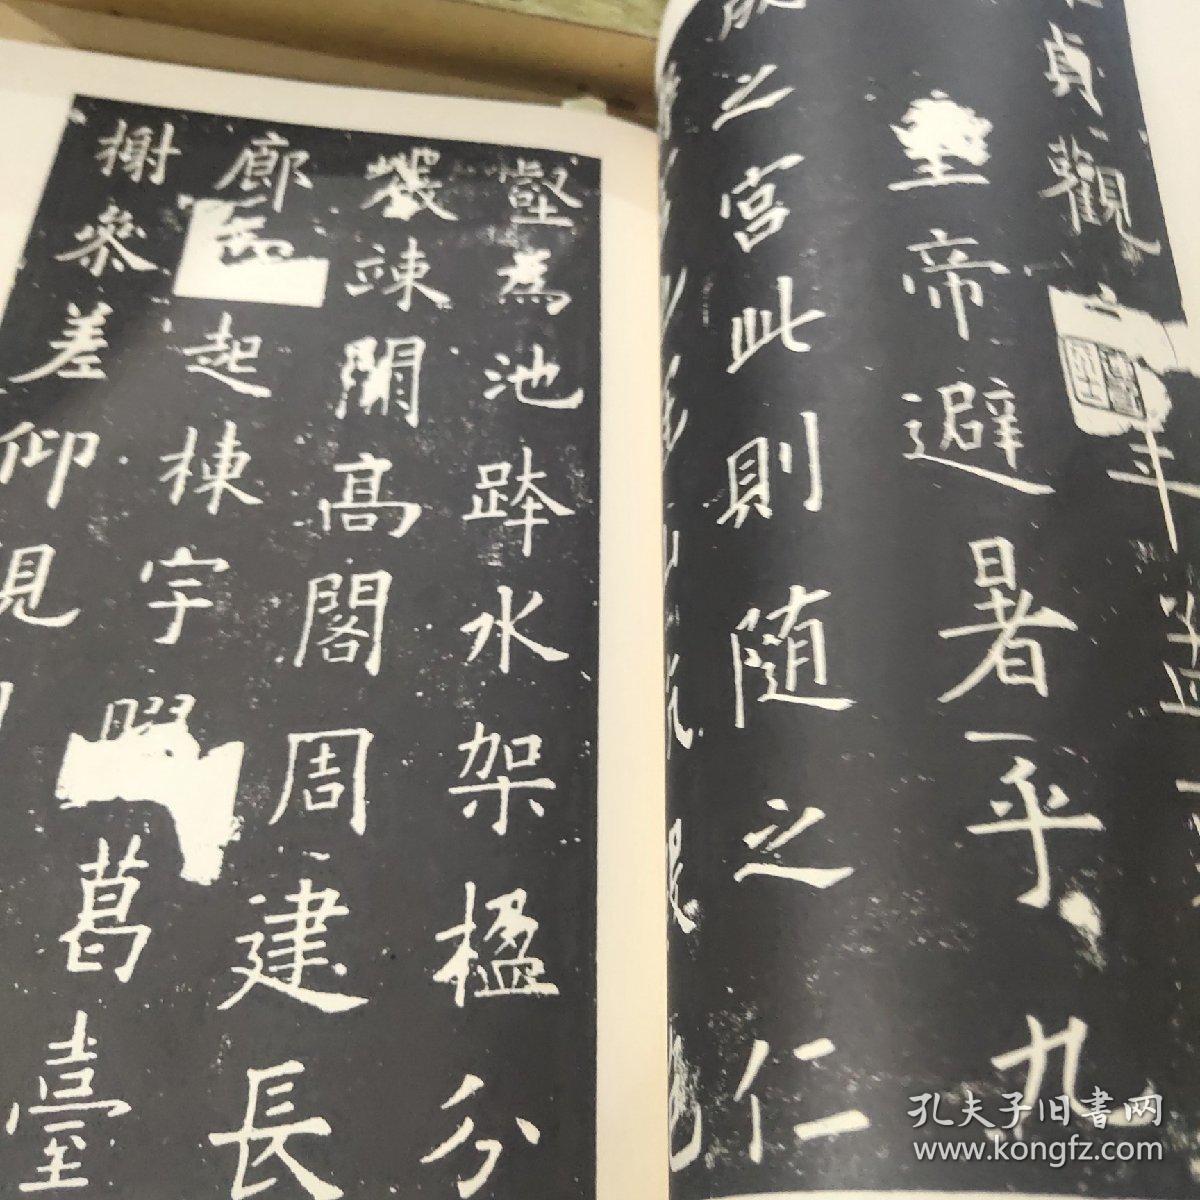 貞觀六年孟
皇帝避暑乎九
成之宮此則隨之仁
壑為池跨水架楹分
巖竦闕高閣周建長
廊四起棟宇膠葛臺
榭參差仰視
孔夫子旧书网
www.kongfz.com